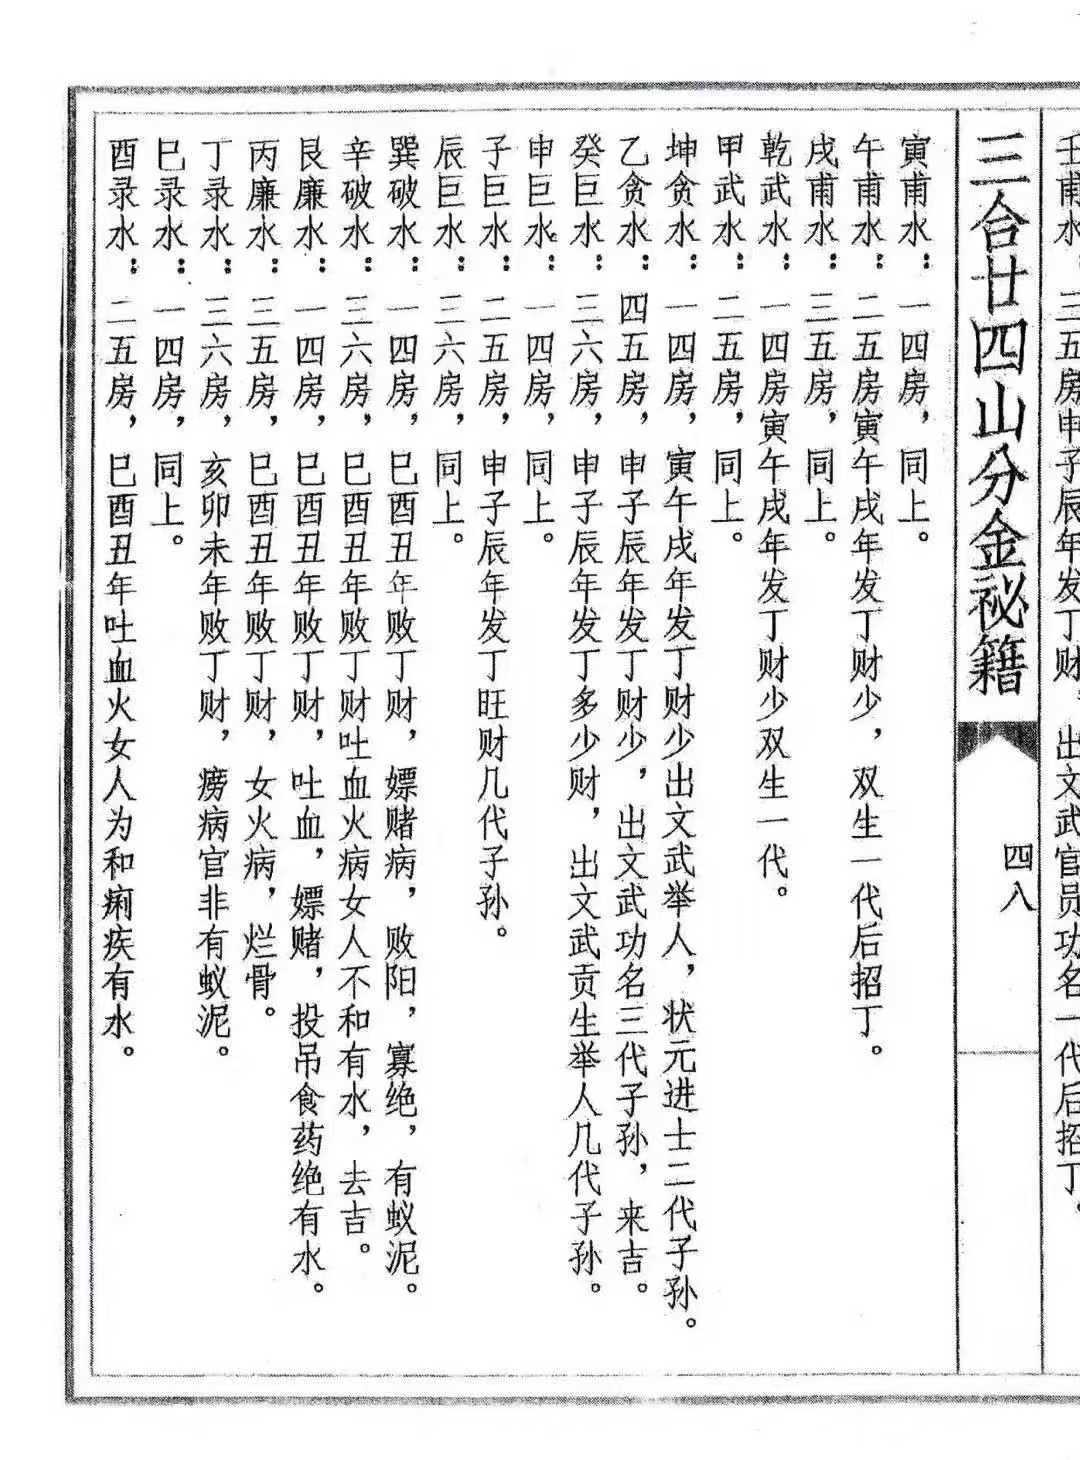 壬甫水：二五房申子辰年发丁财，出文武官员功名一代后招丁。
三合廿四山分金祕籍
四八
寅甫水：一四房，同上。
午甫水：二五房寅午戌年发丁财少，双生一代后招丁。
戌甫水：三五房，同上。
乾武水：一四房寅午戌年发丁财少双生一代。
甲武水：二五房，同上。
坤贪水：一四房，寅午戌年发丁财少出文武举人，状元进士二代子孙。
乙贪水：四五房，申子辰年发丁财少，出文武功名三代子孙，来吉。
癸巨水：三六房，申子辰年发丁多少财，出文武贡生举人几代子孙。
申巨水：一四房，同上。
子巨水：二五房，申子辰年发丁旺财几代子孙。
辰巨水：三六房，同上。
巽破水：一四房，巳酉丑年败丁财，嫖赌病，败阳，寡绝，有蚁泥。
辛破水：三六房，巳酉丑年败丁财吐血火病女人不和有水，去吉。
艮廉水：一四房，巳酉丑年败丁财，吐血，嫖赌，投吊食药绝有水。
丙廉水：三五房，巳酉丑年败丁财，女火病，烂骨。
丁录水：三六房，亥卯未年败丁财，痨病官非有蚁泥。
巳录水：一四房，同上。
酉录水：二五房，巳酉丑年吐血火女人为和痢疾有水。